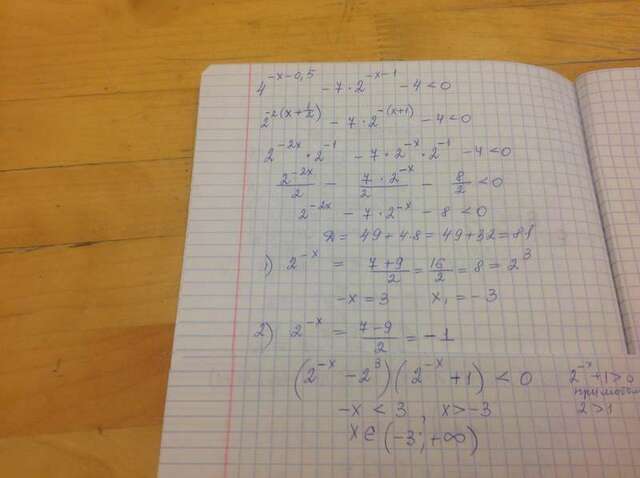 4^{-x-0,5} - 7·2^{-x-1} - 4 < 0
2^{-2(x+\frac{1}{2})} - 7·2^{-(x+1)} - 4 < 0
2^{-2x}·2^{-1} - 7·2^{-x}·2^{-1} - 4 < 0
\frac{2^{-2x}}{2} - \frac{7·2^{-x}}{2} - \frac{8}{2} < 0
2^{-2x} - 7·2^{-x} - 8 < 0
D = 49 + 4·8 = 49 + 32 = 81
1) 2^{-x} = \frac{7+9}{2} = \frac{16}{2} = 8 = 2^3
-x = 3 x₁ = -3
2) 2^{-x} = \frac{7-9}{2} = -1
(2^{-x} - 2^3)(2^{-x} + 1) < 0 2^{-x} + 1 > 0
-x < 3, x > -3 2 > 1
x ∈ (-3; +∞)